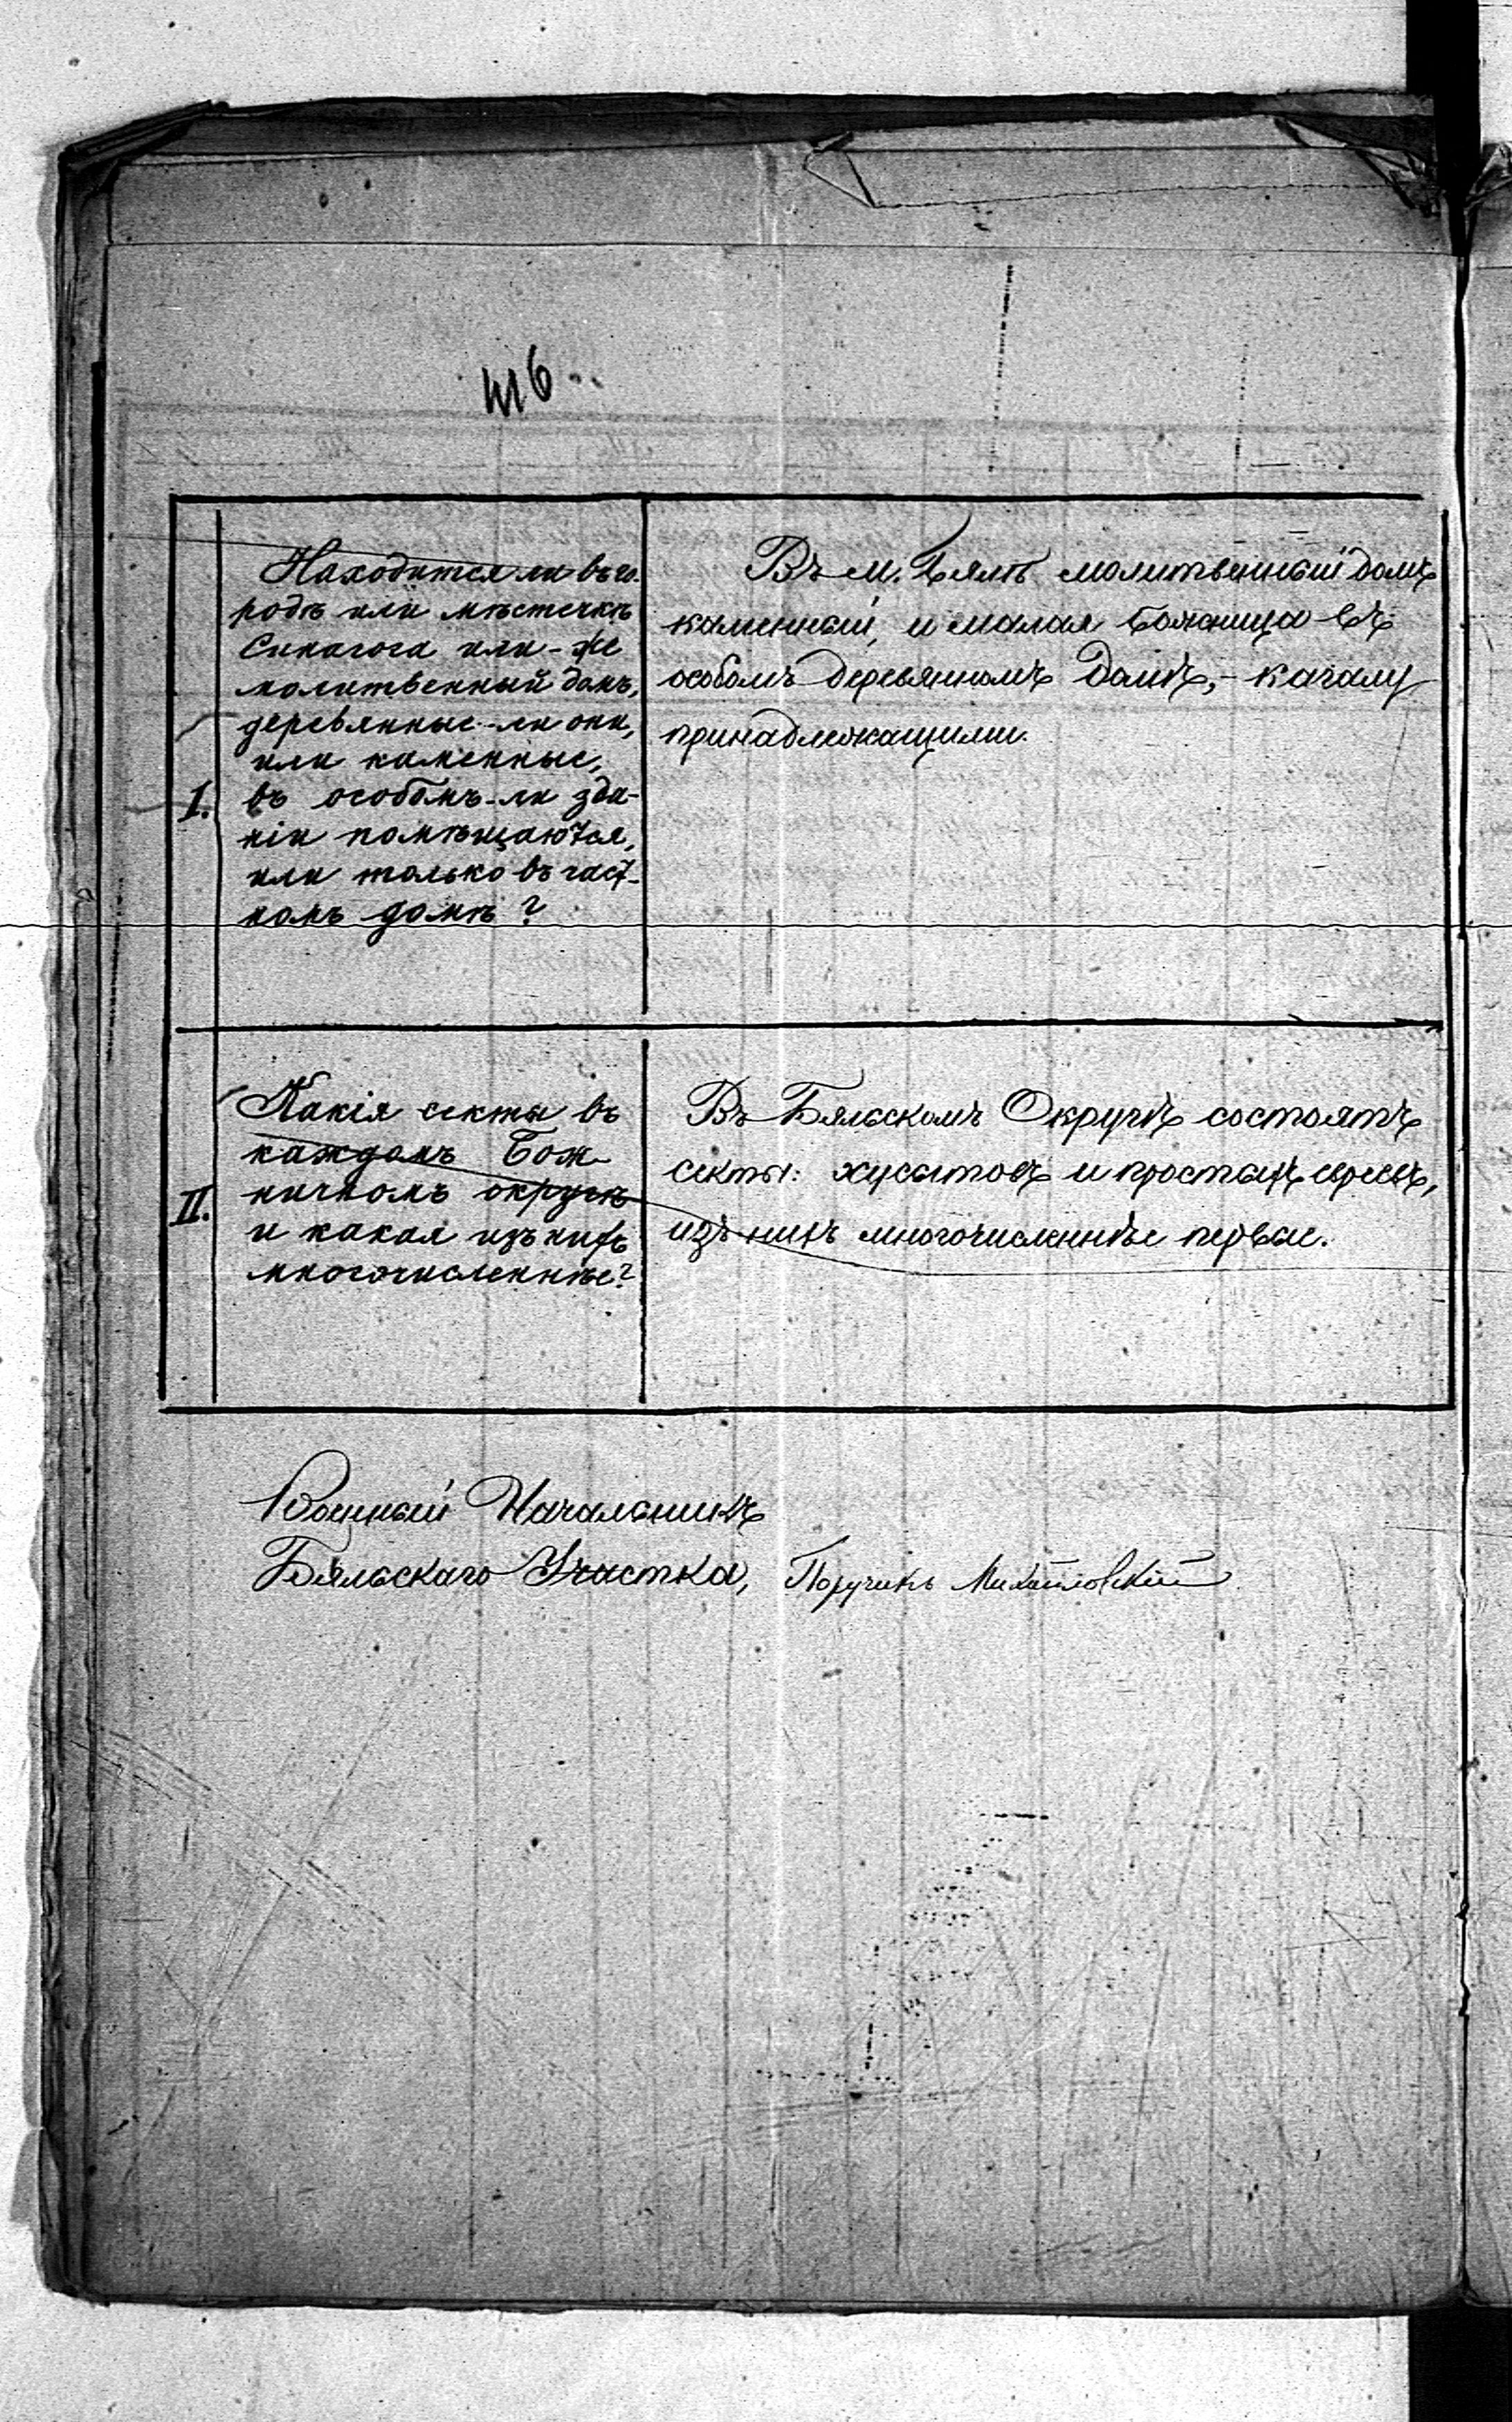 416
I.
Находится ли въ го-
родѣ или мѣстечкѣ
Синагога или-же
молитвенный домъ,
деревянные-ли они,
или каменные,
въ особомъ-ли зда-
ніи помѣщаются,
или только въ част-
номъ домѣ?
Въ м. Бялѣ молитвенный домъ
каменный, и малая божница въ
особомъ деревянномъ домѣ,- кагалу
принадлежащими.
II.
Какія секты въ
каждомъ Бож-
ничномъ округѣ
и какая изъ нихъ
многочисленнѣе?
Въ Бяльскомъ Округѣ состоятъ
секты: хусытовъ и простыхъ евреевъ,
изъ нихъ многочисленнѣе первые.
Военный Начальникъ
Бяльскаго Участка, Поручикъ Михайловскій